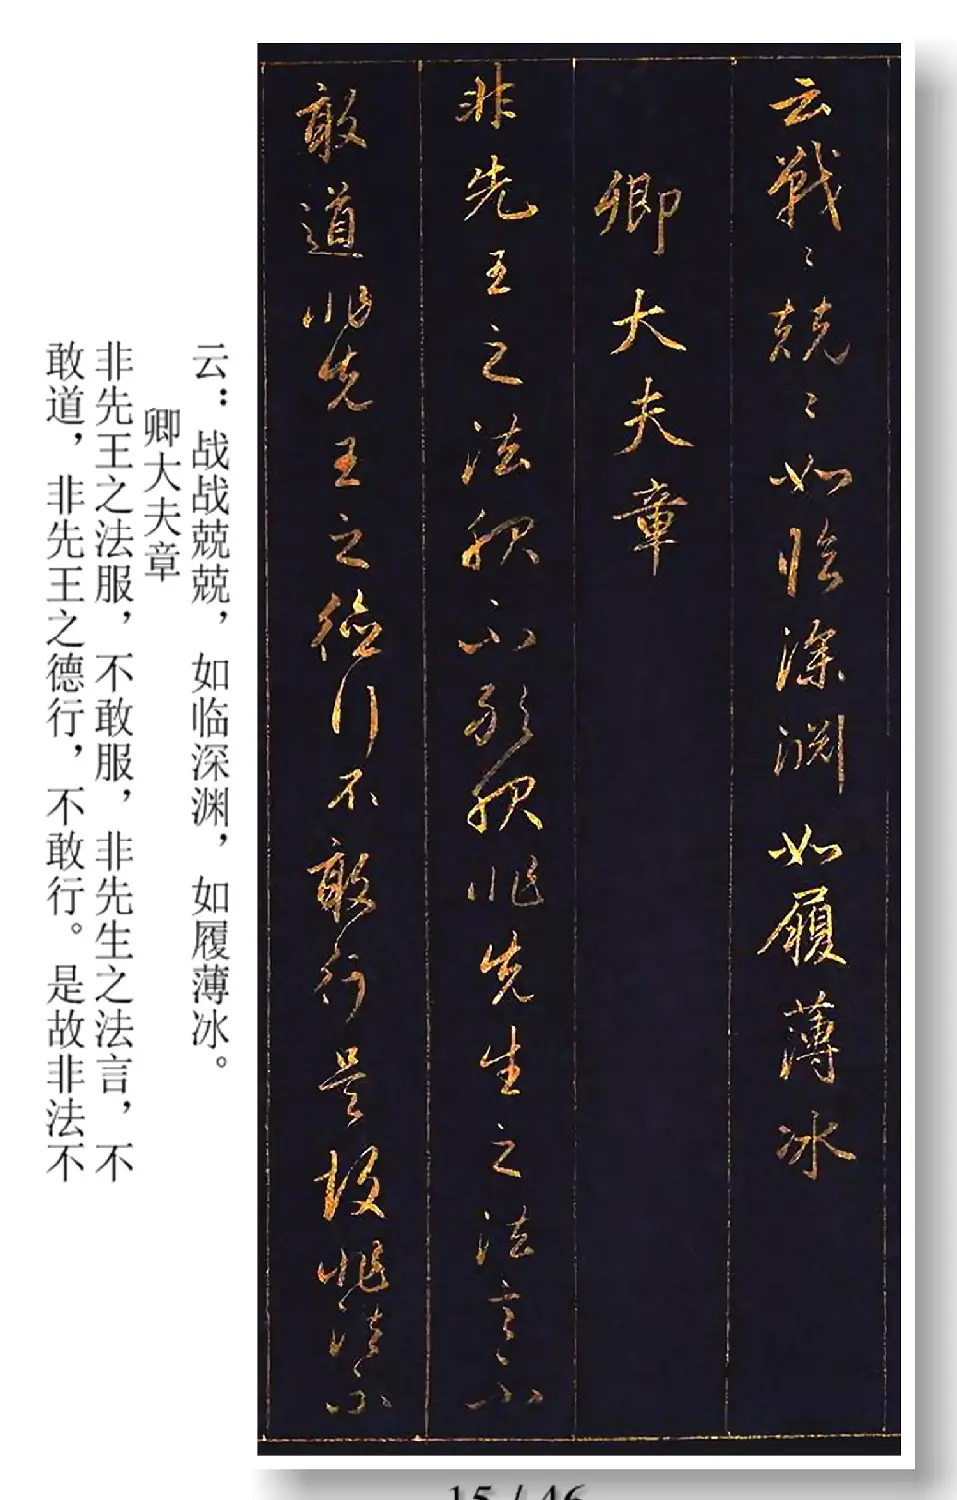 云戰〻兢〻如临深渊如履薄冰
卿大夫章
非先王之法服不敢服非先生之法言不
敢道非先王之德行不敢行是故非法不
云：战战兢兢，如临深渊，如履薄冰。
卿大夫章
非先王之法服，不敢服，非先生之法言，不
敢道，非先王之德行，不敢行。是故非法不
15 / 46